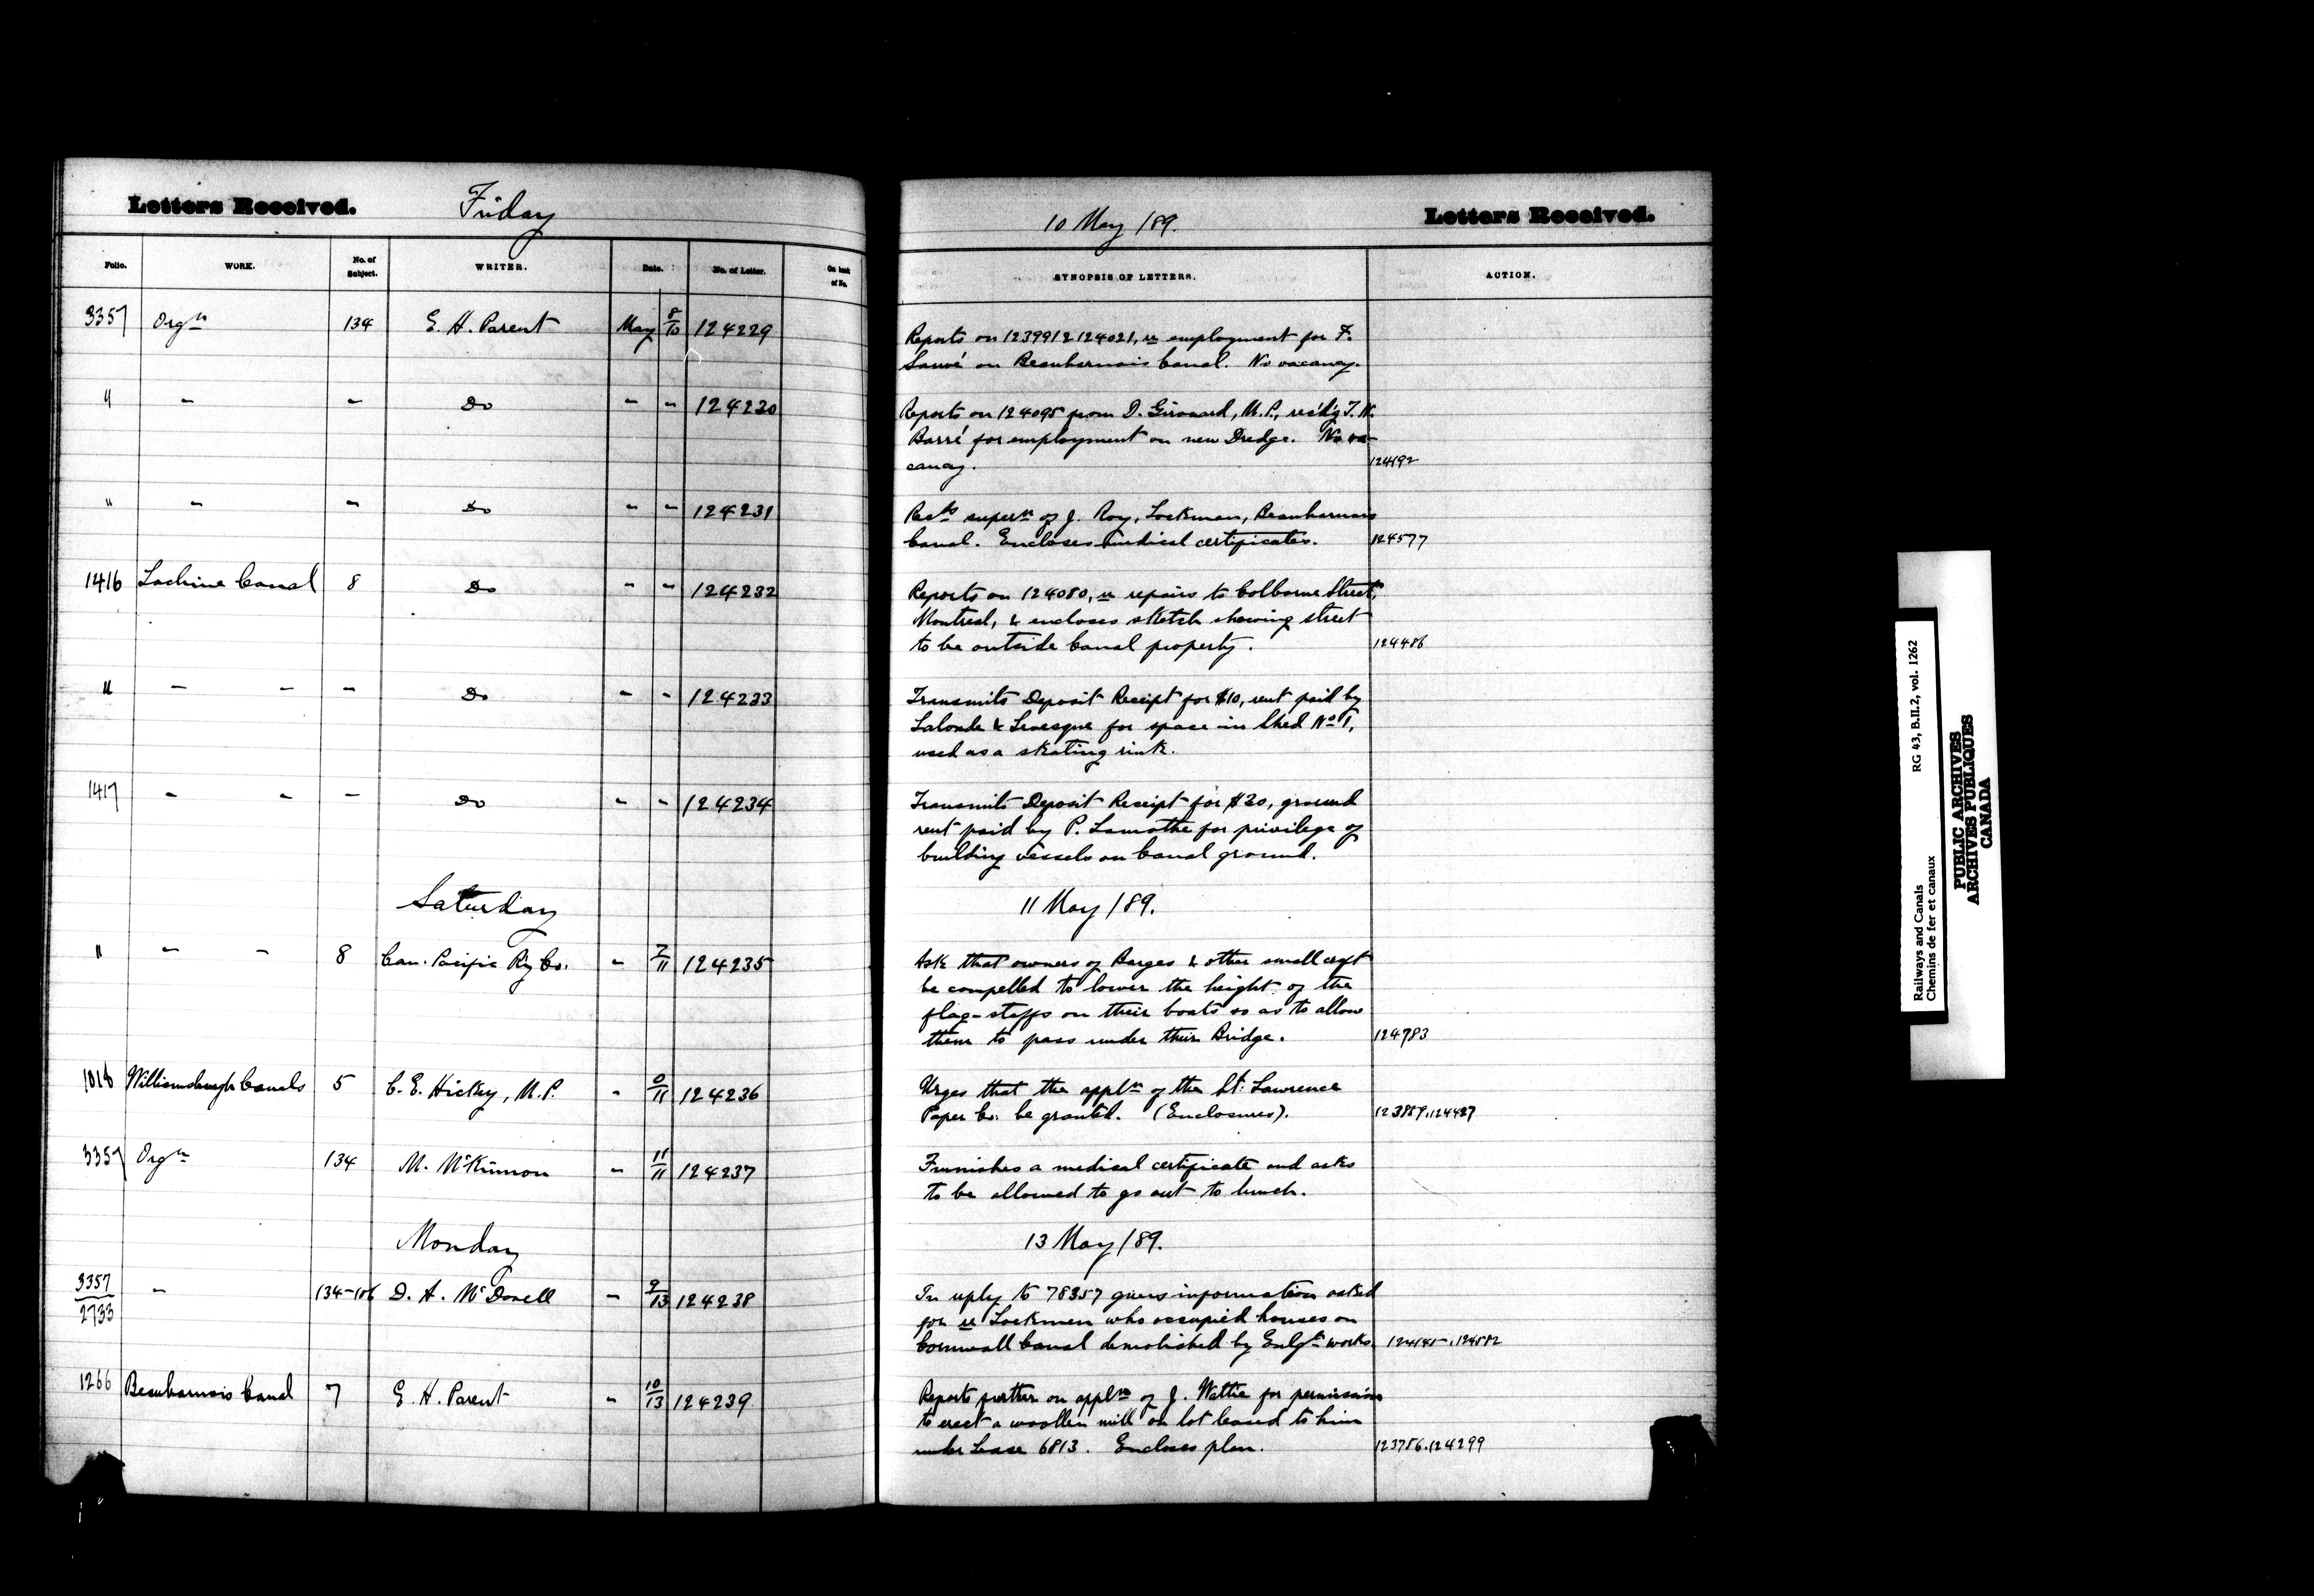 Letters Received. Friday
Folio. WORK. No. of Subject. WRITER. Date. No. of Letter. On back of No.
3357 Orgn 134 E. H. Parent May 8/10 124229
" - - Do - - 124230
" - - Do - - 124231
1416 Lachine Canal 8 Do - - 124232
" - - - Do - - 124233
1417 - - - Do - - 124234
Saturday
" - - 8 Can. Pacific Ry Co. - 7/11 124235
1018 Williamsburgh Canals 5 C. E. Hickey, M.P. - 0/11 124236
3357 Orgn 134 M. McKinnon - 11/11 124237
Monday
3357/2733 - 134-106 D. A. McDonell - 9/13 124238
1266 Beauharnois Canal 7 E. H. Parent - 10/13 124239
10 May /89. Letters Received.
SYNOPSIS OF LETTERS. ACTION.
Reports on 123991 & 124021, re employment for F.
Sauvé on Beauharnois Canal. No vacancy.
Reports on 124095 from D. Girouard, M.P., rec'd'g T. N.
Barré for employment on new Dredge. No va-
cancy. 124192
Recds supern of J. Roy, Lockman, Beauharnois
Canal. Encloses medical certificates. 124577
Reports on 124080, re repairs to Colborne Street,
Montreal, & encloses sketch showing street
to be outside Canal property. 124486
Transmits Deposit Receipt for $10, rent paid by
Lalonde & Levesque for space in Shed No 1,
used as a skating rink.
Transmits Deposit Receipt for $30, ground
rent paid by P. Lamothe for privilege of
building vessels on Canal ground.
11 May /89.
Ask that owners of Barges & other small craft
be compelled to lower the height of the
flag-staffs on their boats so as to allow
them to pass under their Bridge. 124783
Urges that the appln of the St. Lawrence
Paper Co. be granted. (Enclosures). 123859.124427
Furnishes a medical certificate and asks
to be allowed to go out to lunch.
13 May /89.
In reply to 78357 gives information asked
for re Lockmen who occupied houses on
Cornwall Canal demolished by Enlgt works. 124145.124582
Reports further on appln of J. Wattie for permission
to erect a woollen mill on lot leased to him
under Lease 6813. Encloses plan. 123756.124299
Railways and Canals RG 43, B.II.2, vol. 1262
Chemins de fer et canaux
PUBLIC ARCHIVES
ARCHIVES PUBLIQUES
CANADA